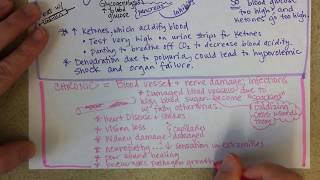 Glycogenolysis
↑ blood
glucose
pancreas
so blood
too high and
ketones go too high.
* ↑ Ketones, which acidify blood
• Test very high on urine strips for ketones
• Panting to breathe off CO2 to decrease blood acidity.
* Dehydration due to polyuria, could lead to hypovolemic
shock and organ failure.
CHRONIC = Blood vessel + nerve damage, infections
* Damaged blood vessels due to
high blood sugar become
w/ fatty atheromas.
* Heart Disease & strokes
* Vision loss
* Kidney damage
capillaries
damaged
* Neuropathy... ↓ sensation in extremities
* poor wound healing
* encourages pathogen growth